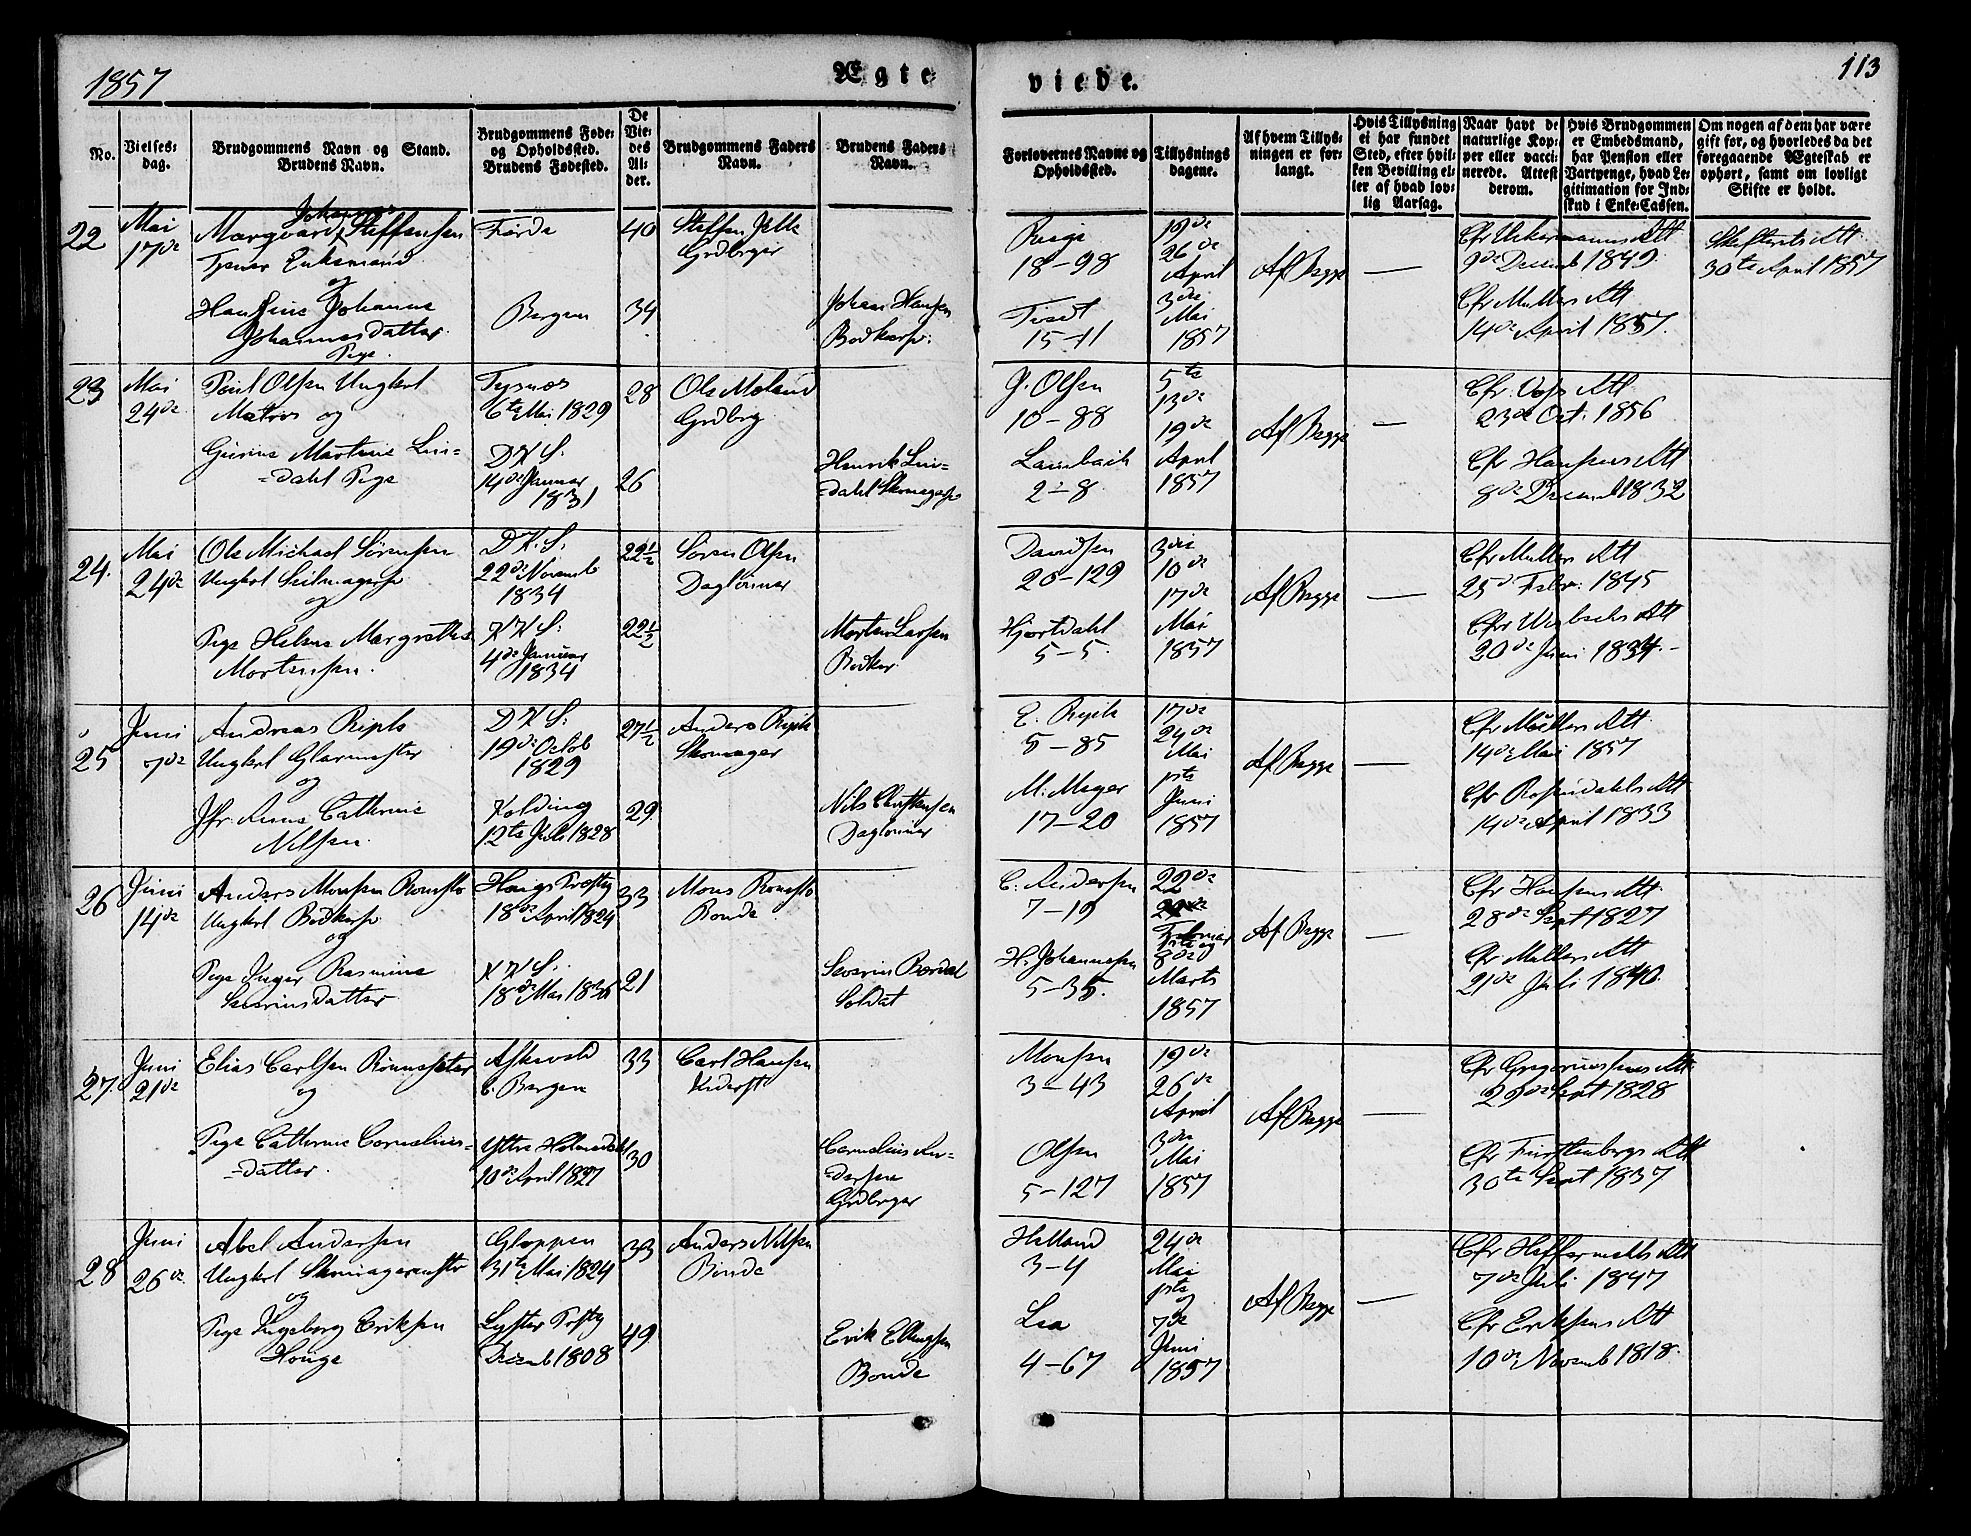 1857
Ægte
viede.
113
No.
Vielses-
dag.
Brudgommens Navn og Stand.
Brudens Navn.
Brudgommens Føde-
og Opholdssted.
Brudens Fødested.
De
Vie-
des
Al-
der.
Brudgommens Faders
Navn.
Brudens Faders
Navn.
Forlovernes Navne og
Opholdssted.
Tillysnings
dagene.
Af hvem Tillys-
ningen er for-
langt.
Hvis Tillysning
ei har fundet
Sted, efter hvil-
ken Bevilling el-
ler af hvad lov-
lig Aarsag.
Naar havt de
naturlige Kop-
per eller vacci-
nerede. Attest
derom.
Hvis Brudgommen
er Embedsmand,
har Pension eller
Vartpenge, hvad Le-
gitimation for Ind-
skud i Enke-Cassen.
Om nogen af dem har være
gift før, og hvorledes da det
foregaaende Ægteskab er
ophørt, samt om lovligt
Skifte er holdt.
22
Mai
17de
Johannes
Marqvard Steffensen
Enkemand
og
Hansine Johanne
Johannesdatter
Pige
Førde
Bergen
40
34
Steffen
Grdbrger
Johan Hansen
Bødkersv.
18-98
15-11
19de
26de
April
3die
Mai
1857
Af Begge
—
Cfr Att
9de Decemb 1849.
Cfr Mullers Att
14de April 1857.
Skifterets Att
30te April 1857
23
Mai
24de
Poul Olsen Ungkrl
Matros og
Gurine Martine Lin-
=dahl Pige
Tysnes
6te Mai 1829
D K S.
14de Januar
1831
28
26
Ole Moland
Grdbrg
Henrik Lin-
=dahl Skomagersv
J. Olsen
10-88
Laimbach
2-8
5te
13de
19de
April
1857
Af Begge
—
Cfr Att
23de Oct. 1856
Cfr Hansens Att
8de Decemb 1832
24.
Mai
24de
Ole Michael Sörensen
Ungkrl Seilmagersv
og
Pige Helene Margrethe
Mortensen.
D K. S.
22de Novemb
1834
K K S.
4de Januar
1834
22½
22½
Sören Olsen
Daglönner
Morten Larsen
Bødker
Davidsen
20-129
Hjortdahl
5-5.
3die
10de
17de
Mai
1857
Af Begge
—
Cfr Mullers Att
25de Febr. 1845
Cfr Att
20de Juni 1834.-
25
Juni
7de
Andreas
Ungkrl Glarmester
og
Jfr. Anne Cathrine
Nilsen.
D K S.
19de Octob
1829
Kolding
12te Juli 1828
27½
29
Anders
Skomager
Nils Christensen
Daglönner
5-85
M. Meyer
17-20
17de
24de
Mai
1ste
Juni
1857
Af Begge
—
Cfr Müllers Att
14de Mai 1857
Cfr Rosendahls Att
14de April 1833
26
Juni
14de
Anders Monsen
Ungkrl Bødkersv
og
Pige Inger Rasmine
Severinsdatter
Hougs Præstg
18de April 1824
K K S.
18de Mai 1836
33
21
Mons
Bonde
Severin
Soldat
C. Andersen
7-19
H. Johannesen
5-35.
22de
Februar
1ste og
8de
Marts
1857
Af Begge
—
Cfr Hansens Att
28de Sept 1827
Cfr Mullers Att
21de Juli 1840.
27.
Juni
21de
Elias Carlsen
og
Pige Cathrine Cornelius-
=datter.
Askevold
b. Bergen
Ytre Holmedal
10de April 1827
33
30
Carl Hansen
Cornelius An-
=dersen
Grdbrger
Monsen
3-43
Olsen
5-127
19de
26de
April
3die
Mai
1857
Af Begge
—
Cfr Att
29de Sept 1828
Cfr Fürstenbergs Att
30te Sept 1837
28
Juni
26de
Abel Andersen
Ungkrl
og
Pige Ingeborg Eriksen
Houge
Gloppen
31te Mai 1824
Lyster Præstg
Decemb 1808
33
49
Anders Nilsen
Bonde
Erik Ellingsen
Bonde
Helland
3-4
Lea
4-67
24de
Mai
1ste
og
7de
Juni
1857
Af Begge
—
Cfr Att
7de Juli 1847
Cfr Eriksens Att
10de Novemb 1818.